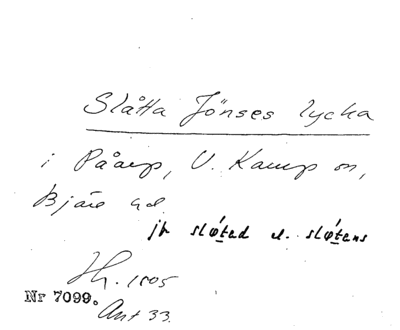 Slåtta Jönses lycka
i Påarp, V. Karup sn,
Bjäre hd
jh sløtad el. sløtens
Hh. 1805
Nr 7099.
Ant 33.